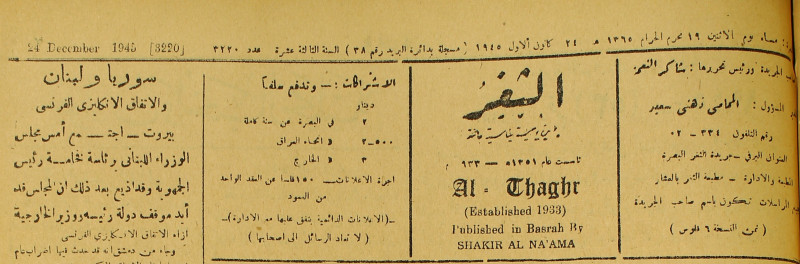 مساء يوم الاثنين ١٩ محرم الحرام ١٣٦٥ هـ ٢٤ كانون الاول ١٩٤٥ (مسجلة بدائرة البريد رقم ٣٨) السنة الثالثة عشرة عدد ٣٢٢٠
24 December 1945 [3220]
الجريدة ورئيس تحريرها: شاكر النعمة
المسؤول: المحامي زهني سعيد
رقم التلفون ٣٣٤ - ٠٢
العنوان البرقي - جريدة الثغر البصرة
والادارة - مطبعة الثغر بالعشار
المراسلات تكون باسم صاحب الجريدة
(ثمن النسخة ٦ فلوس)
الثغر
يومية سياسية
تأسست عام ١٣٥١هـ - ٩٣٣ م
Al - Thaghr
(Established 1933)
Published in Basrah By
SHAKIR AL NA'AMA
الاشتراكات: - وتدفع سلفاً
دينار
٢ في البصرة عن سنة كاملة
٥٠٠-٢ انحاء العراق
٣ الخارج
اجرة الاعلانات - ١٥٠ فلسا عن العقد الواحد
من العمود
-(الاعلانات الدائمية يتفق عليها مع الادارة)-
(لا تعاد الرسائل الى اصحابها)
سوريا ولبنان
والاتفاق الانكليزي الفرنسي
بيروت - اجتمع أمس مجلس
الوزراء اللبناني برئاسة فخامة رئيس
الجمهورية وقد اذيع بعد ذلك ان المجلس قد
أيد موقف دولة رئيسه ووزير الخارجية
ازاء الاتفاق الانكليزي الفرنسي
وجاء من دمشق انه قد حدث فيها اضراب عام